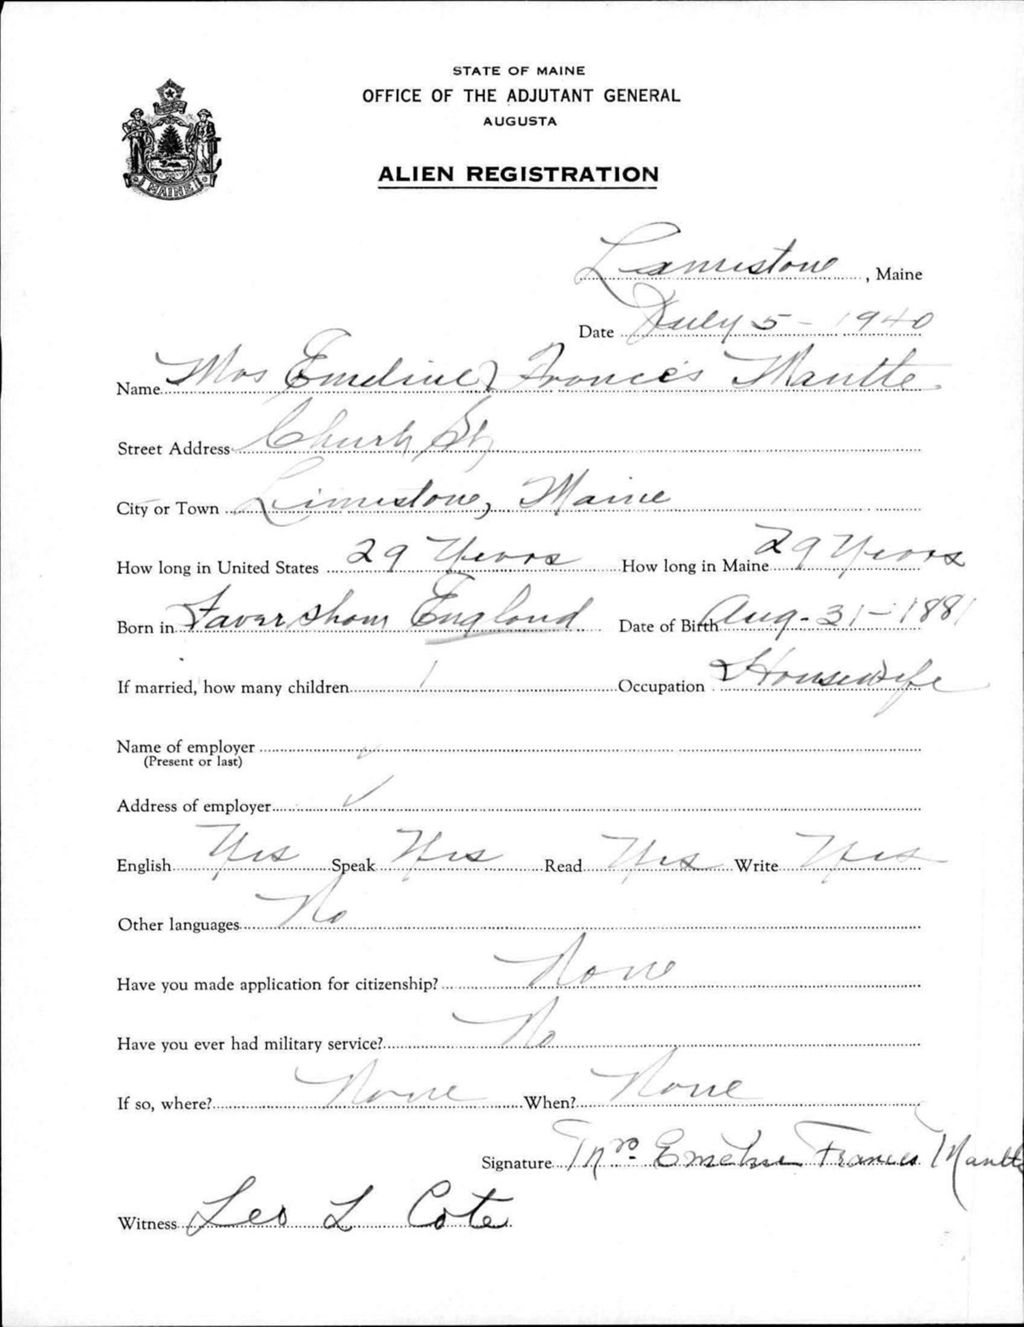 STATE OF MAINE
OFFICE OF THE ADJUTANT GENERAL
AUGUSTA
ALIEN REGISTRATION
MAINE
Limestone, Maine
Date July 5 - 1940
Name Mrs Emeline Frances Mantle
Street Address Church St,
City or Town Limestone, Maine
How long in United States 29 Years How long in Maine 29 Years
Born in Faversham England Date of Birth Aug - 31 - 1881
If married, how many children 1 Occupation Housewife
Name of employer ✓
(Present or last)
Address of employer ✓
English Yes Speak Yes Read Yes Write Yes
Other languages No
Have you made application for citizenship? None
Have you ever had military service? No
If so, where? None When? None
Signature Mrs. Emeline Frances Mantle
Witness Leo L Cote